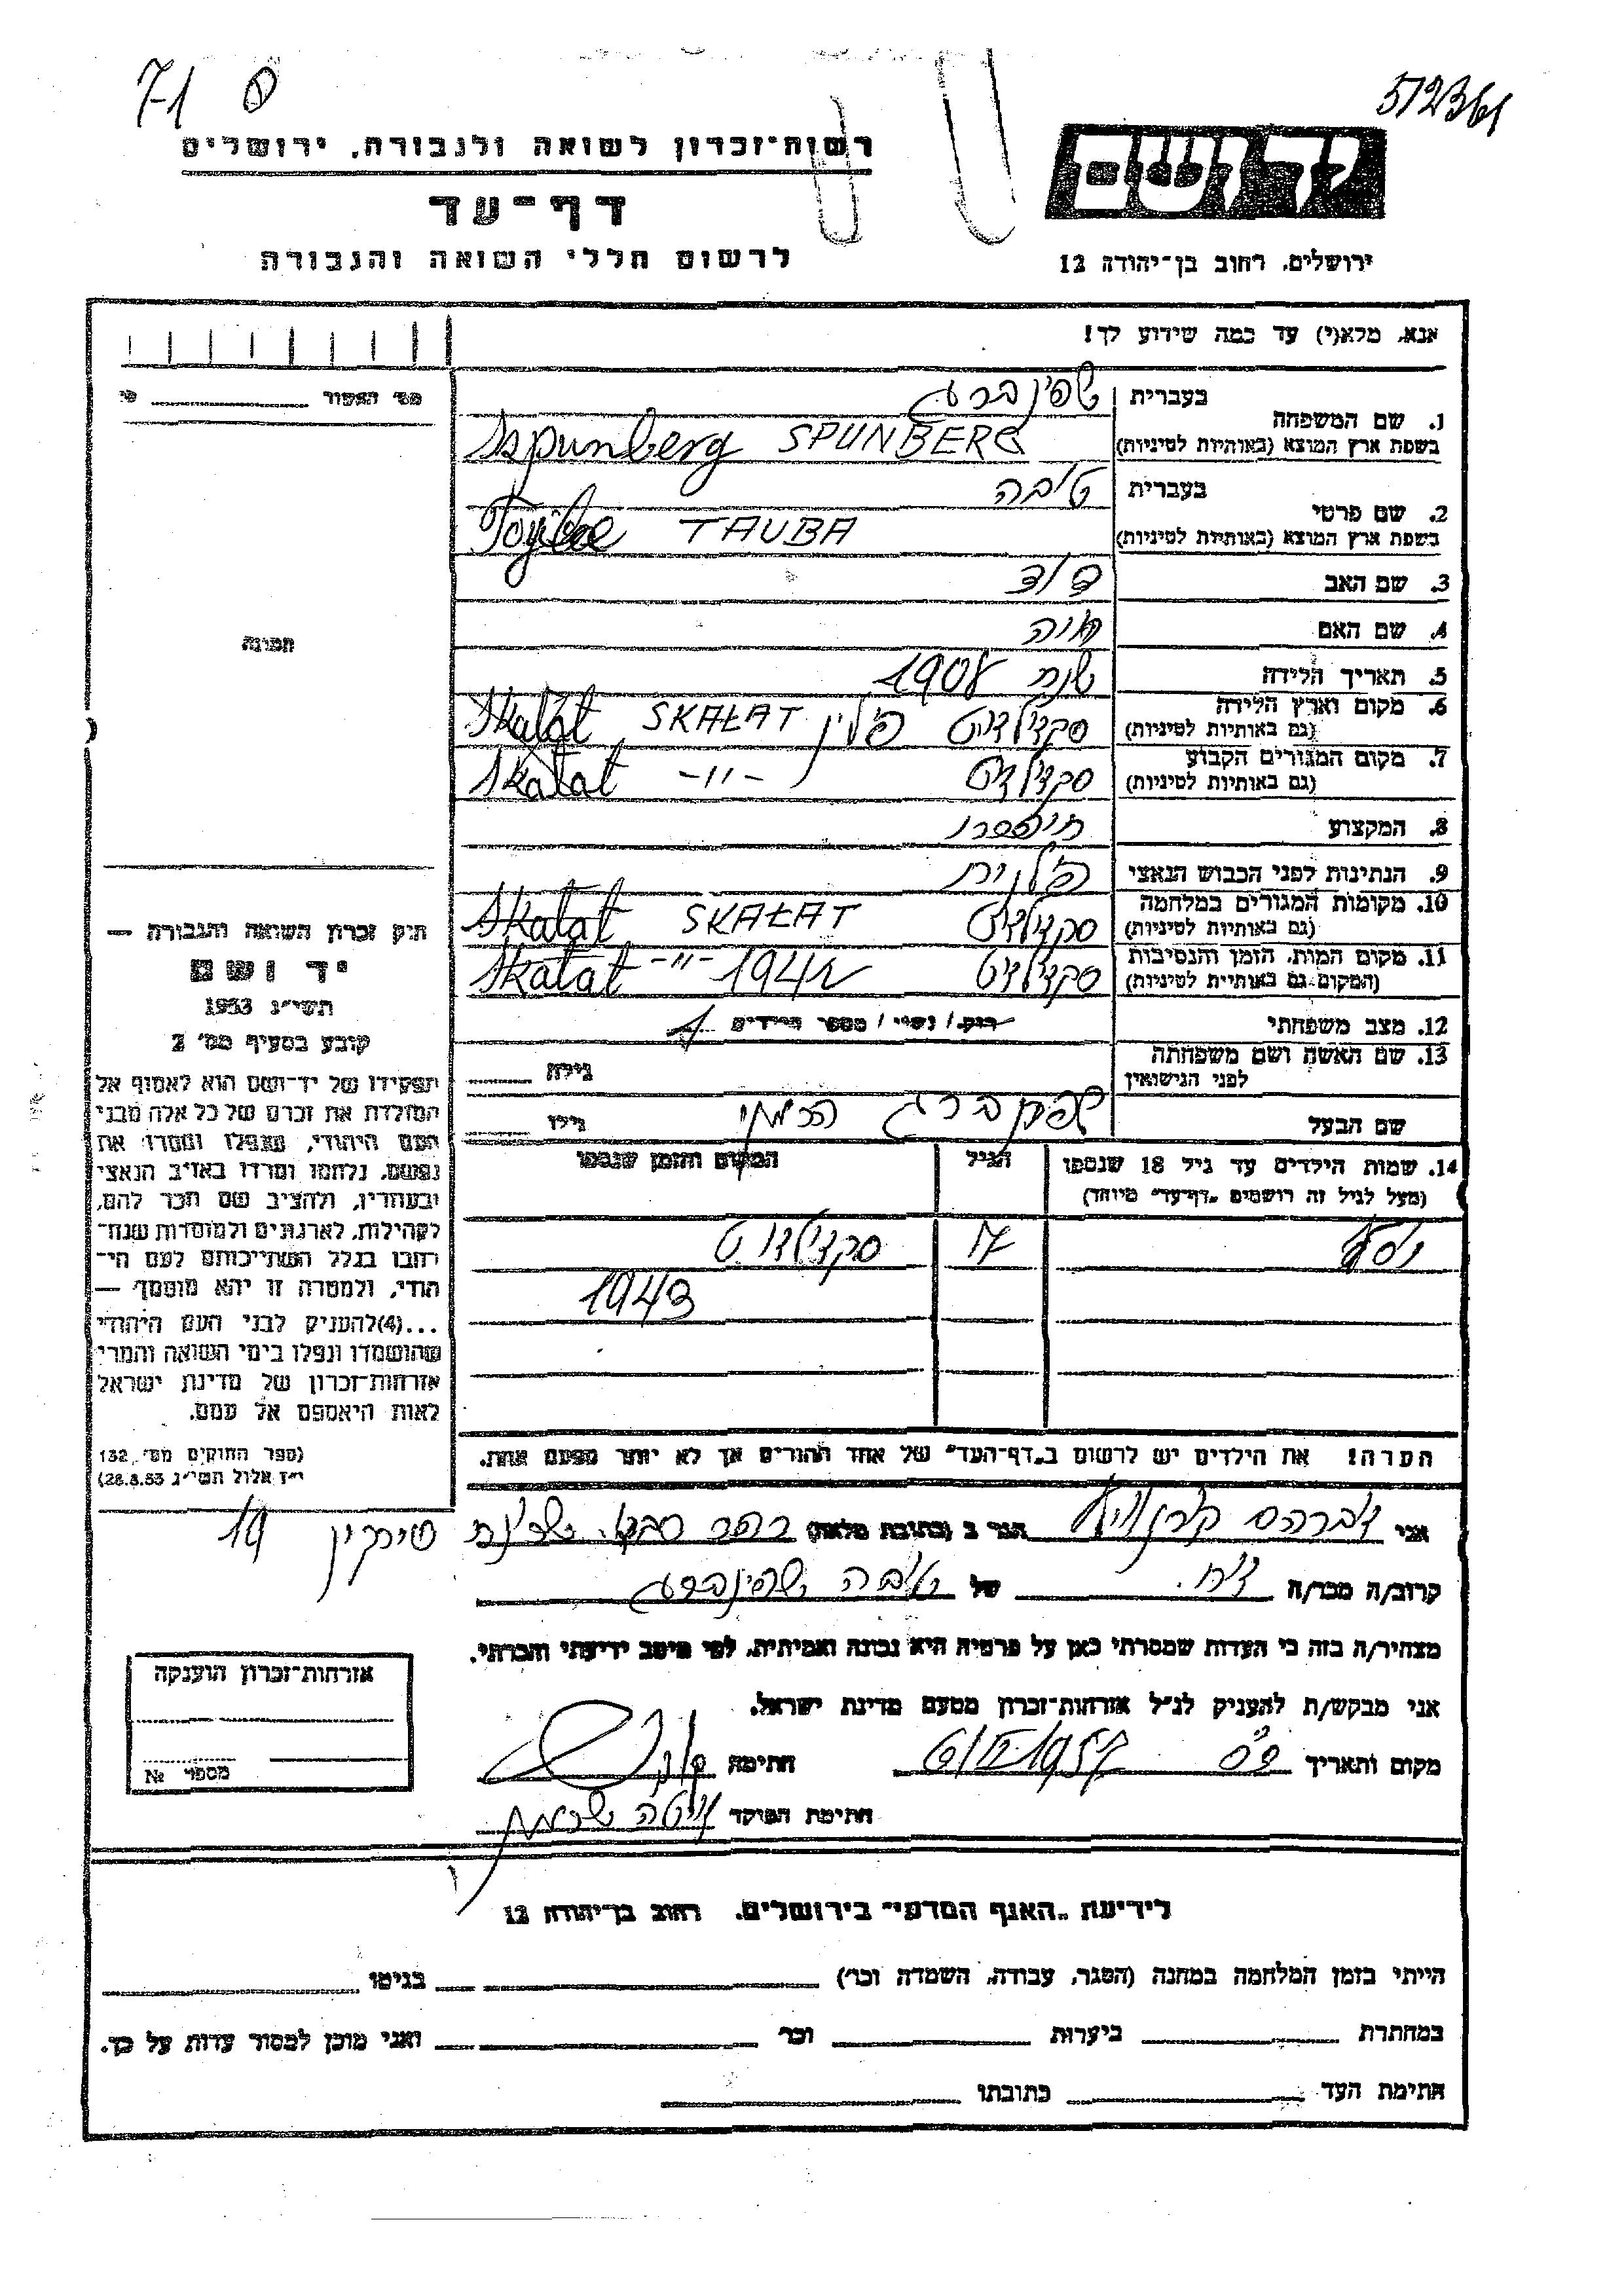 71
512361
רשות-זכרון לשואה ולגבורה, ירושלים
דף-עד
לרשום חללי השואה והגבורה
ירושלים, רחוב בן-יהודה 12
אנא, מלא(י) עד כמה שידוע לך!
מס׳ האשור
1. שם המשפחה
בעברית שפינברג
בשפת ארץ המוצא (באותיות לטיניות) Sspunberg SPUNBERG
2. שם פרטי
בעברית טיבה
בשפת ארץ המוצא (באותיות לטיניות) Toybe TAUBA
3. שם האב דוד
4. שם האם חיה
5. תאריך הלידה שנת 1908
6. מקום וארץ הלידה
(גם באותיות לטיניות) סקאלאט פולין SKAŁAT Skałat
7. מקום המגורים הקבוע
(גם באותיות לטיניות) סקאלאט -״- Skałat
8. המקצוע
9. הנתינות לפני הכבוש הנאצי פולנית
10. מקומות המגורים במלחמה
(גם באותיות לטיניות) סקאלאט SKAŁAT Skatat
11. מקום המות, הזמן והנסיבות
(המקום גם באותיות לטיניות) סקאלאט 1942 -״- Skatat
12. מצב משפחתי רווק / נשוי / מספר הילדים 1
13. שם האשה ושם משפחתה
לפני הנישואין
גילה
שם הבעל שפינברג
גילו
תמונה
14. שמות הילדים עד גיל 18 שנספו
(מעל לגיל זה רושמים "דף-עד" מיוחד)
הגיל
המקום והזמן שנספו
יוסף
סקאלאט
1943
הערה! את הילדים יש לרשום ב"דף-העד" של אחד ההורים אך לא יותר מפעם אחת.
חוק זכרון השואה והגבורה —
יד ושם
תשי״ג 1953
קובע בסעיף מס׳ 2
תפקידו של יד-ושם הוא לאסוף אל
המולדת את זכרם של כל אלה מבני
העם היהודי, שנפלו ומסרו את
נפשם, נלחמו ומרדו באויב הנאצי
ובעוזריו, ולהציב שם וזכר להם,
לקהילות, לארגונים ולמוסדות שנח־
רבו בגלל השתייכותם לעם הי־
הודי, ולמטרה זו יהא מוסמך —
...(4)להעניק לבני העם היהודי
שהושמדו ונפלו בימי השואה והמרי
אזרחות-זכרון של מדינת ישראל
לאות היאספם אל עמם.
(ספר החוקים מס׳ 132,
י״ז אלול תשי״ג 28.8.53)
אני אברהם הגר ב (כתובת מלאה) שכונת סירקין 19
קרוב/ה מכר/ה אח של טיבה שפינברג
מצהיר/ה בזה כי העדות שמסרתי כאן על פרטיה היא נכונה ואמיתית, לפי מיטב ידיעתי והכרתי.
אני מבקש/ת להעניק לנ״ל אזרחות-זכרון מטעם מדינת ישראל.
מקום ותאריך
חתימה
חתימת הפוקד
אזרחות-זכרון הוענקה
מספר №
לידיעת "האגף המדעי" בירושלים, רחוב בן-יהודה 12
הייתי בזמן המלחמה במחנה (הסגר, עבודה, השמדה וכו׳) בגיטו
במחתרת ביערות וכו׳ ואני מוכן למסור עדות על כך.
חתימת העד כתובתו